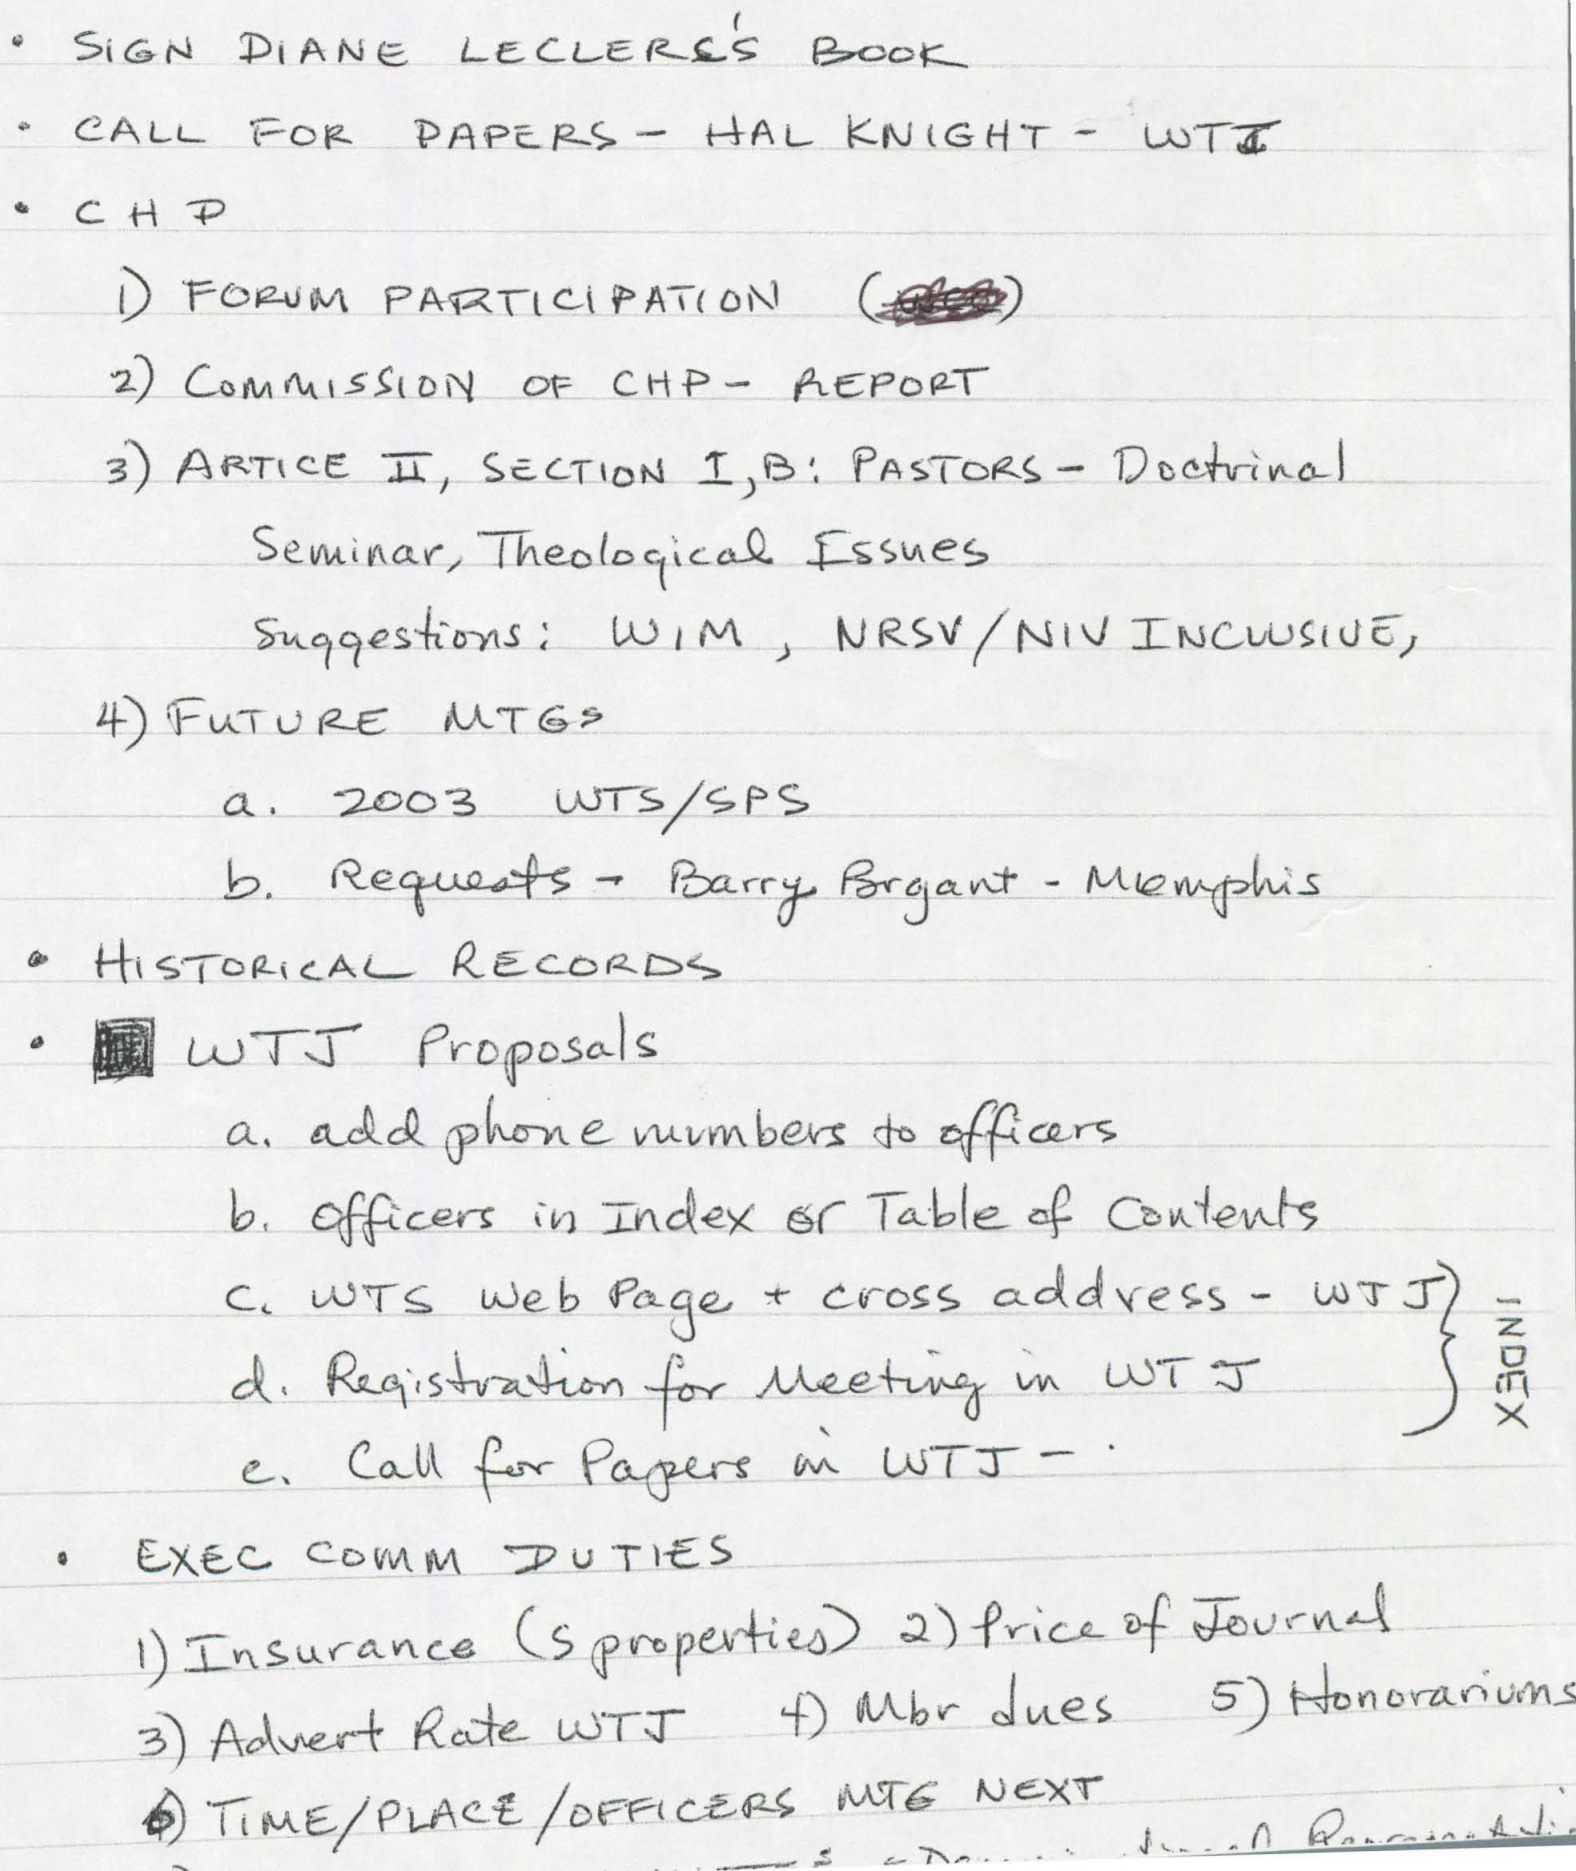 • SIGN DIANE LECLERS'S BOOK
• CALL FOR PAPERS - HAL KNIGHT - WTJ
• CHP
1) FORUM PARTICIPATION ( )
2) COMMISSION OF CHP - REPORT
3) ARTICE II, SECTION I, B: PASTORS - Doctrinal
Seminar, Theological Issues
Suggestions: WIM, NRSV/NIV INCLUSIVE,
4) FUTURE MTGS
a. 2003 WTS/SPS
b. Requests - Barry Bryant - Memphis
• HISTORICAL RECORDS
• WTJ Proposals
a. add phone numbers to officers
b. Officers in Index or Table of Contents
c. WTS Web Page + cross address - WTJ
d. Registration for Meeting in WTJ
e. Call for Papers in WTJ -
INDEX
• EXEC COMM DUTIES
1) Insurance (S properties) 2) Price of Journal
3) Advert Rate WTJ 4) Mbr dues 5) Honorariums
6) TIME/PLACE/OFFICERS MTG NEXT